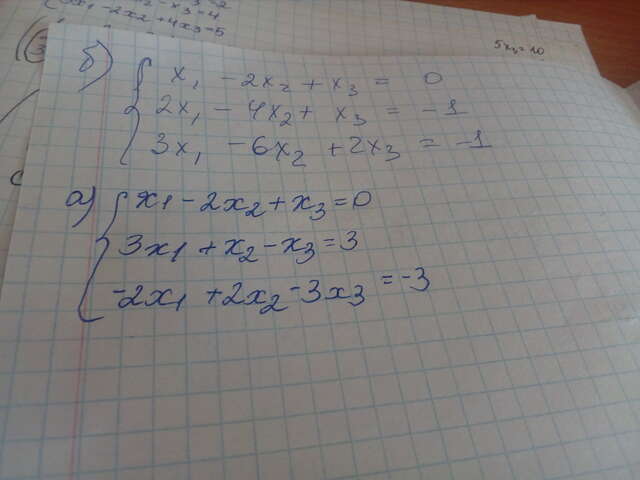 x₁ - 2x2 + 4x3 = 5
5x₂ = 10
б) x₁ - 2x₂ + x₃ = 0
2x₁ - 4x₂ + x₃ = -1
3x₁ - 6x₂ + 2x₃ = -1
а) x1 - 2x₂ + x₃ = 0
3x1 + x₂ - x₃ = 3
-2x1 + 2x₂ - 3x3 = -3